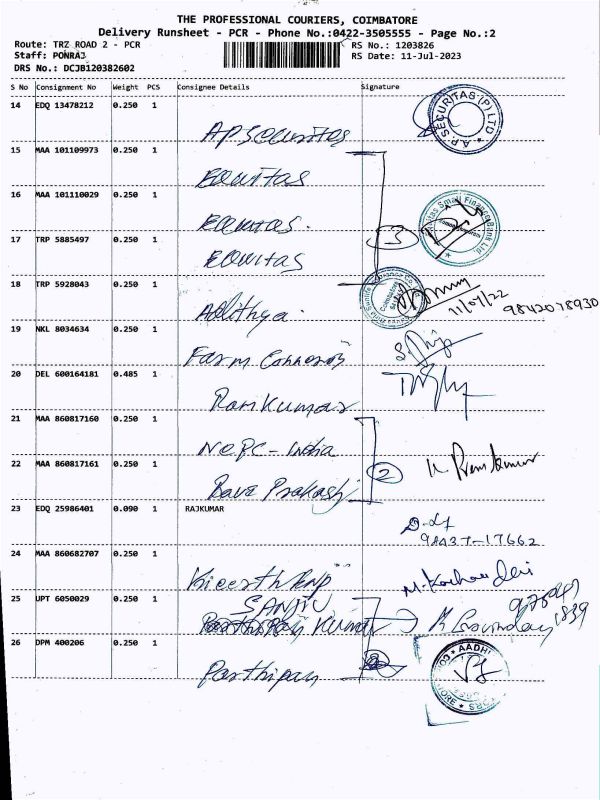 THE PROFESSIONAL COURIERS, COIMBATORE
Delivery Runsheet - PCR - Phone No.:0422-3505555 - Page No.:2
Route: TRZ ROAD 2 - PCR RS No.: 1203826
Staff: PONRAJ RS Date: 11-Jul-2023
DRS No.: DCJB120382602
S No Consignment No Weight PCS Consignee Details Signature
14 EDQ 13478212 0.250 1
AP Securitas
A.P. SECURITAS (P) LTD
15 MAA 101109973 0.250 1
Equitas
16 MAA 101110029 0.250 1
Equitas.
3
17 TRP 5885497 0.250 1
Equitas
18 TRP 5928043 0.250 1
Adithya.
11/07/22 9842078930
19 NKL 8034634 0.250 1
Farm
20 DEL 600164181 0.485 1
Ramkumar
21 MAA 860817160 0.250 1
NEPC - India
22 MAA 860817161 0.250 1
Bava Prakash
2
Premkumar
23 EDQ 25986401 0.090 1 RAJKUMAR
98437-17662
24 MAA 860682707 0.250 1
25 UPT 6050029 0.250 1
SANJIV
Kumar
26 DPM 400206 0.250 1
Parthipan
AADHI